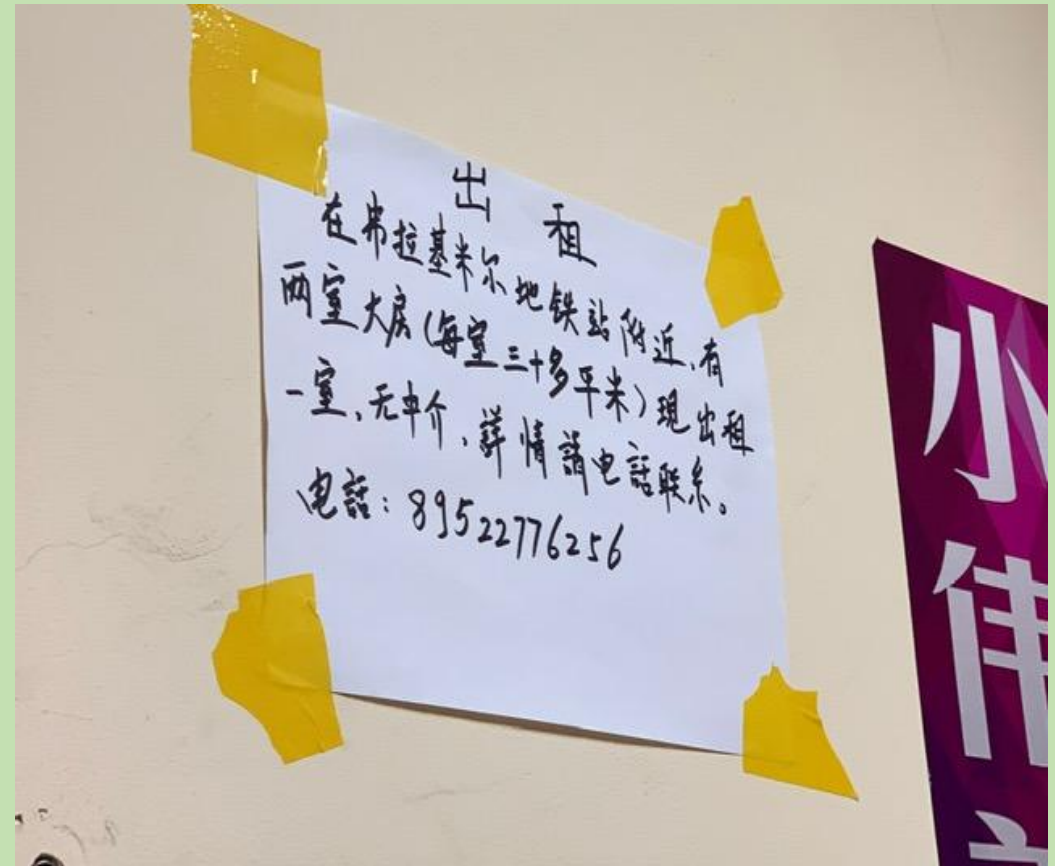 出租
在弗拉基米尔地铁站附近,有
两室大房(每室三十多平米)現出租
一室、无中介、詳情請电話联系。
电話: 89522776256
小
伟